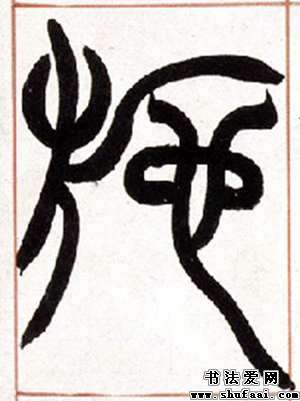 施
书法爱网
www.shufaai.com